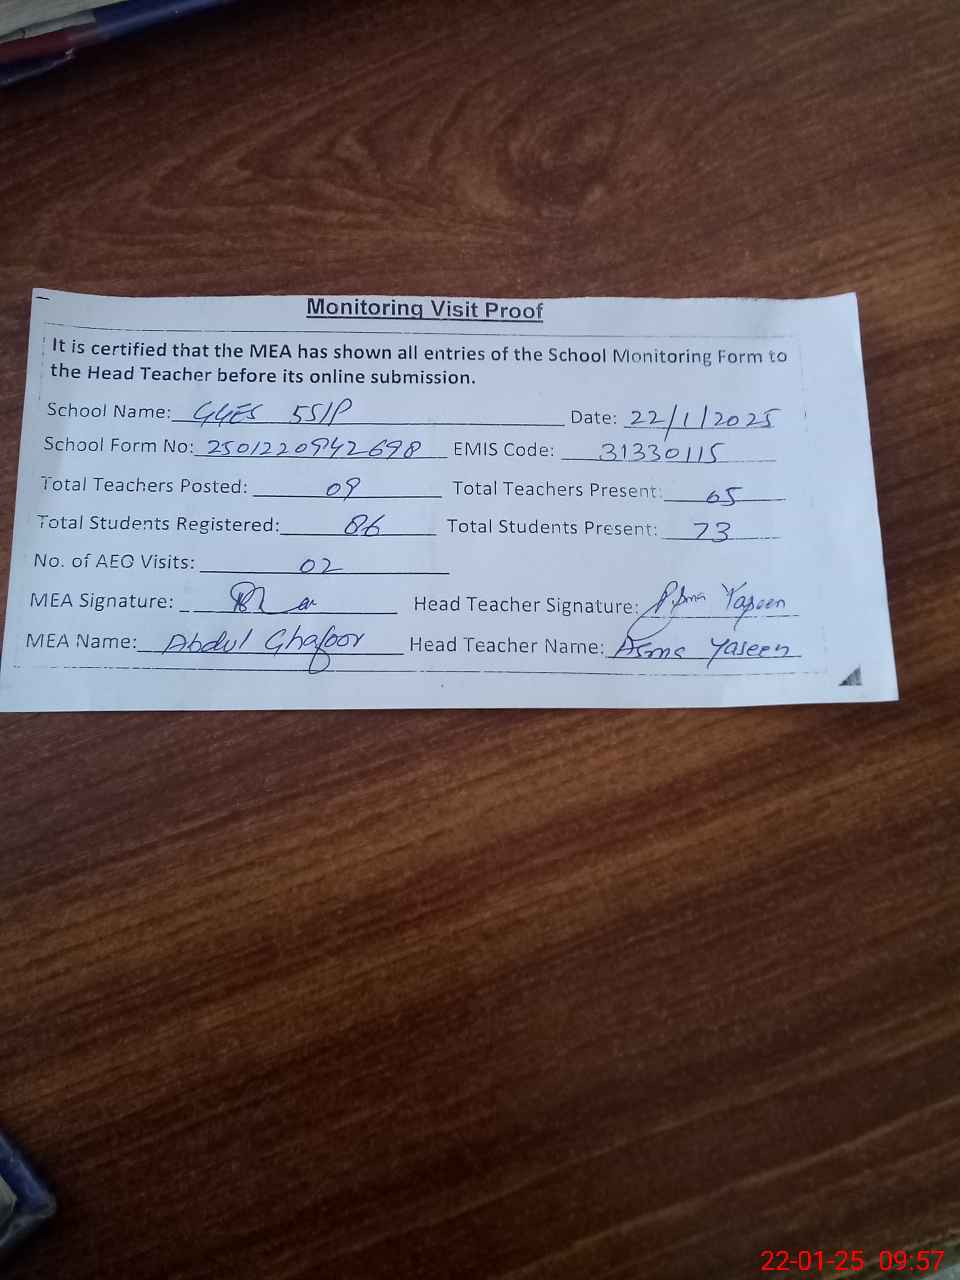 Monitoring Visit Proof
It is certified that the MEA has shown all entries of the School Monitoring Form to
the Head Teacher before its online submission.
School Name: GGES 55/P Date: 22/1/2025
School Form No: 2501220942698 EMIS Code: 31330115
Total Teachers Posted: 09 Total Teachers Present: 05
Total Students Registered: 86 Total Students Present: 73
No. of AEO Visits: 02
MEA Signature: Head Teacher Signature: Asma Yaseen
MEA Name: Abdul Ghafoor Head Teacher Name: Asma Yaseen
22-01-25 09:57